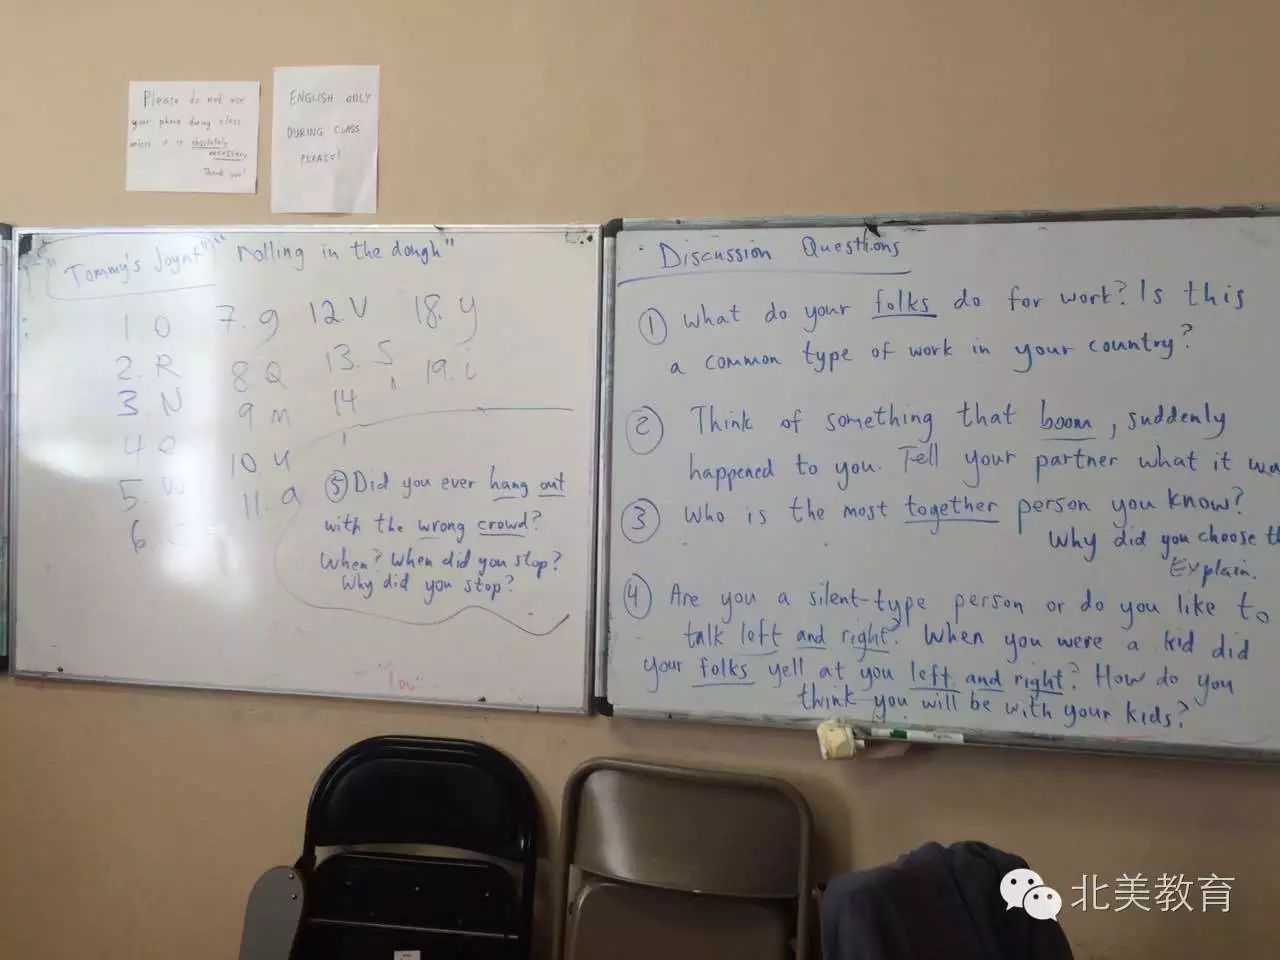 Please do not use
your phone during class
unless it is absolutely
necessary.
Thank you!
ENGLISH ONLY
DURING CLASS
PLEASE!
"Tommy's Joynt" "rolling in the dough"
1. O
2. R
3. N
4. O
5. W
6. C
7. g
8. Q
9 m
10. u
11. a
12 V
13. S
14
18. y
19. i
⑤ Did you ever hang out
with the wrong crowd?
When? When did you stop?
Why did you stop?
Discussion Questions
① What do your folks do for work? Is this
a common type of work in your country?
② Think of something that boom, suddenly
happened to you. Tell your partner what it wa
③ Who is the most together person you know?
Why did you choose th
Explain.
④ Are you a silent-type person or do you like to
talk left and right? When you were a kid did
your folks yell at you left and right? How do you
think you will be with your kids?
北美教育